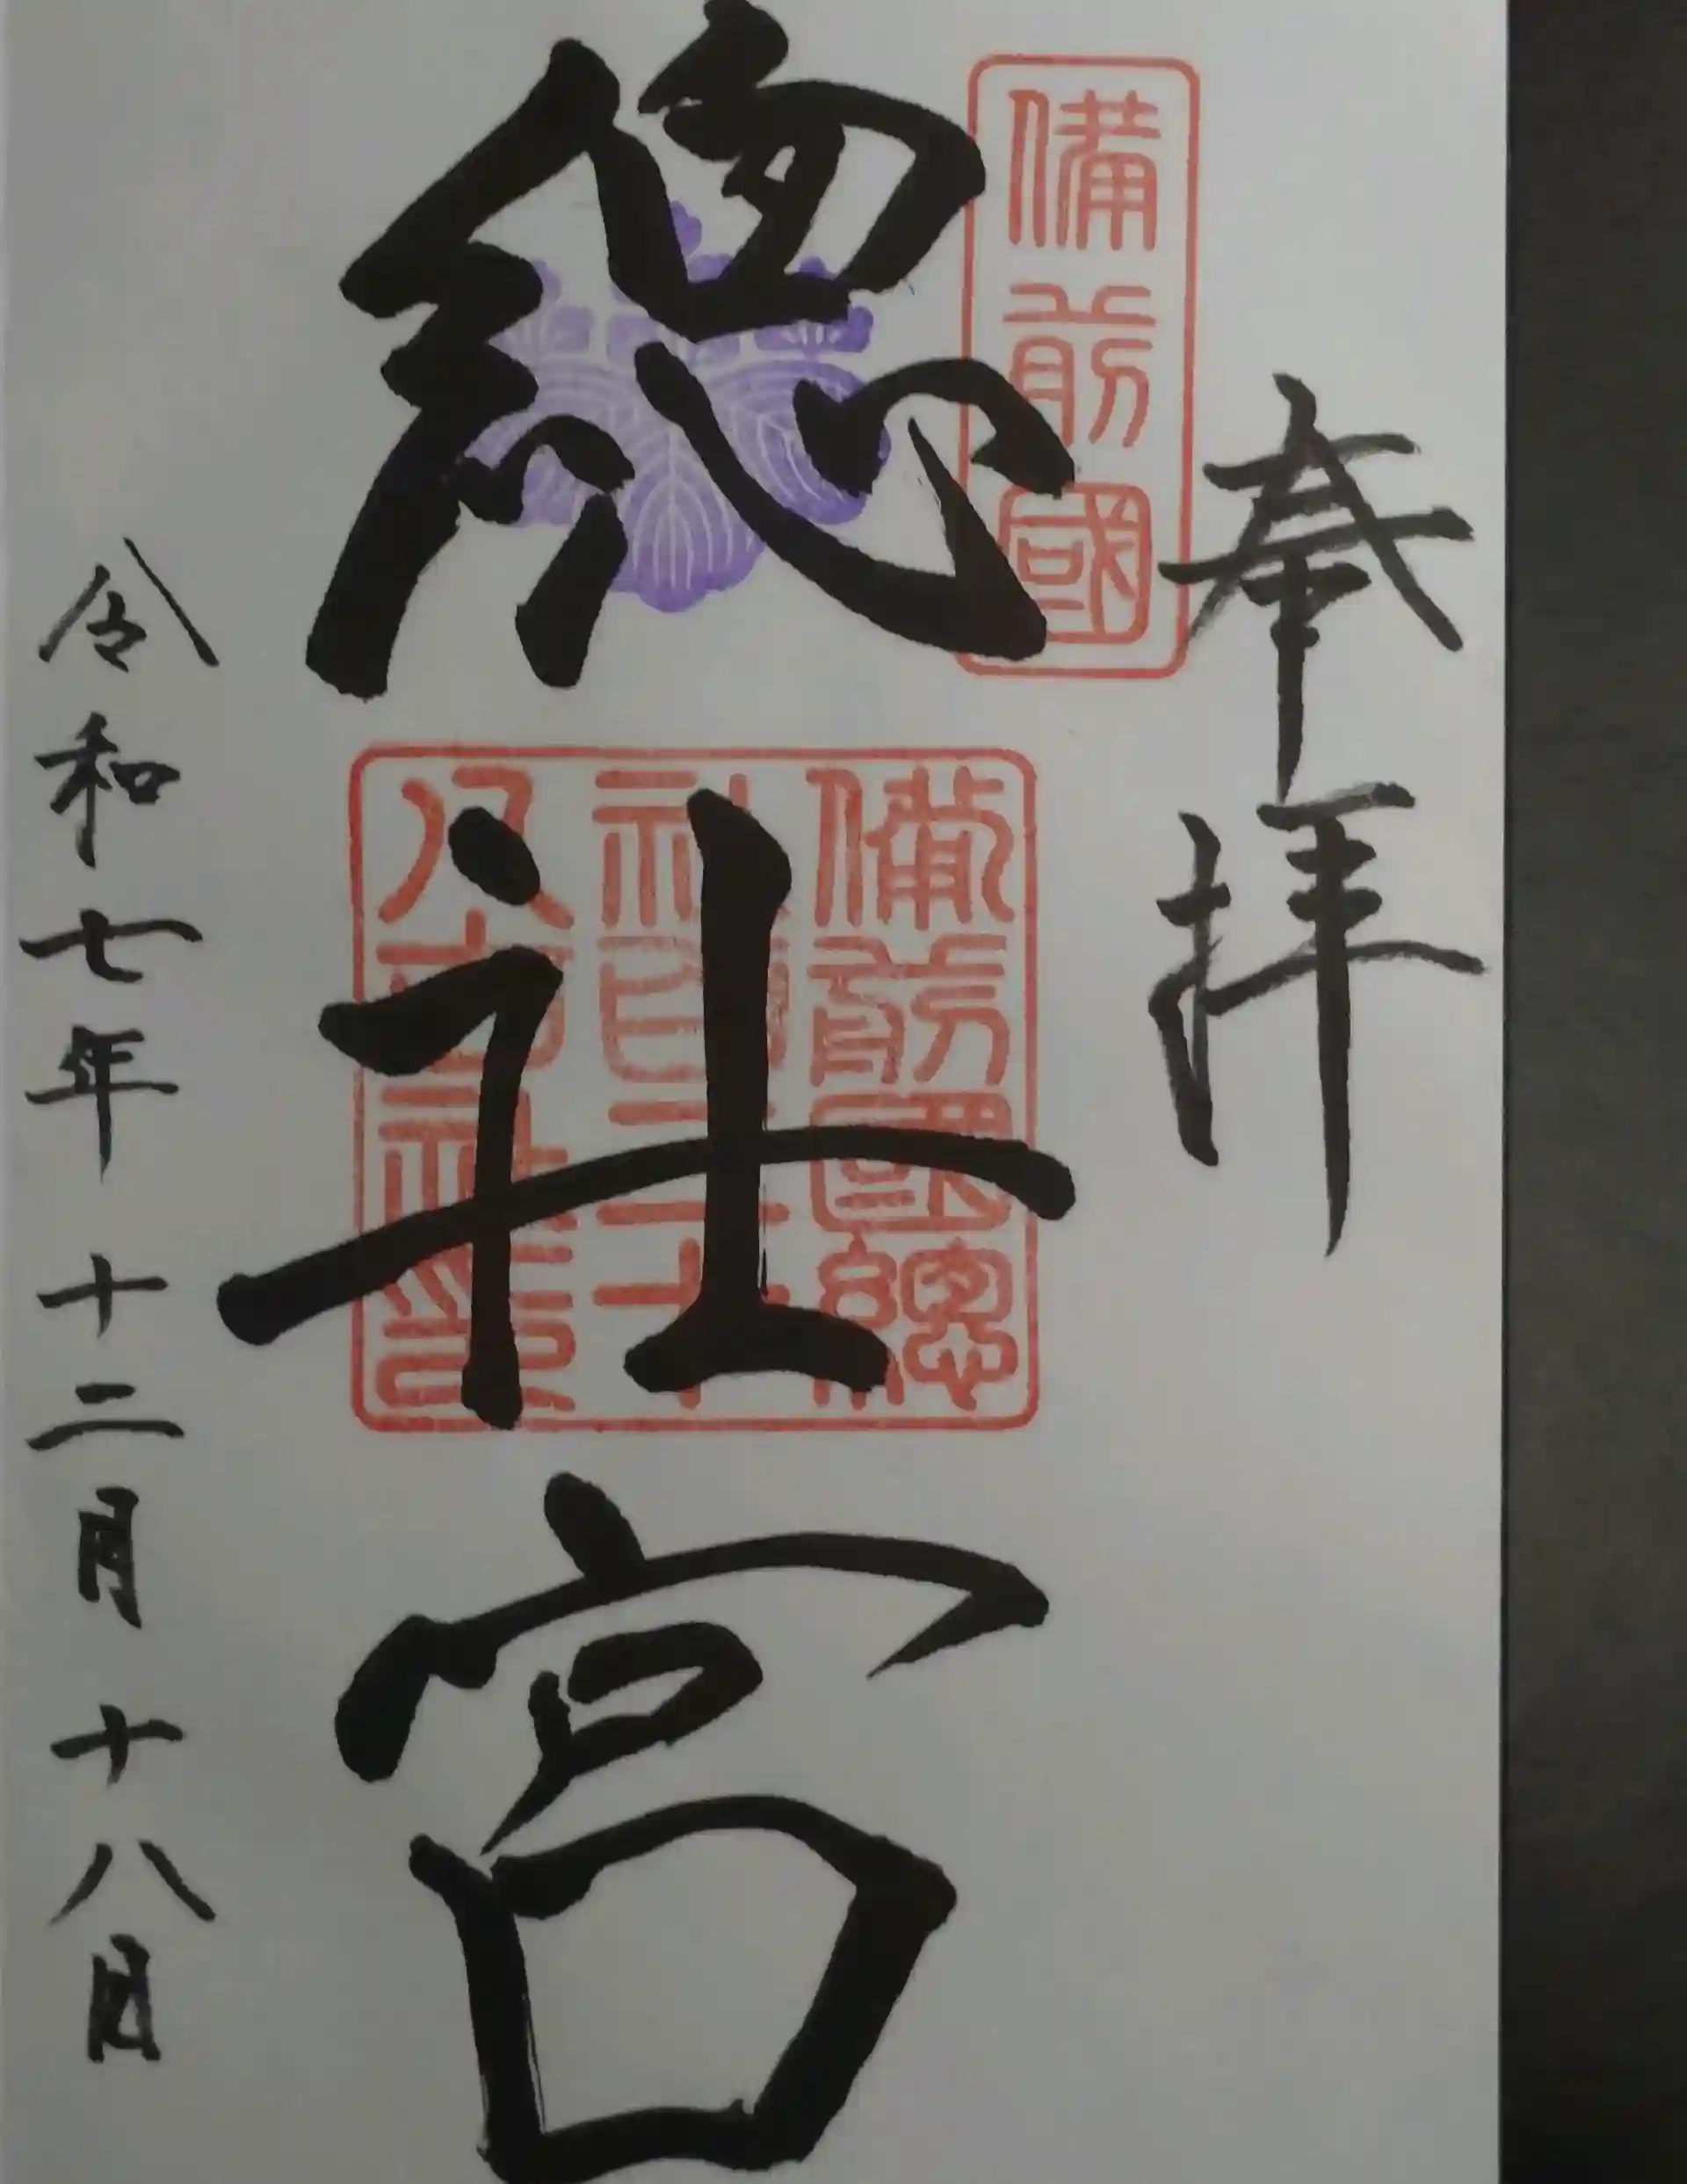 奉拝
備前國
總社宮
備前國總
社百二十
八社印
令和七年十二月十八日